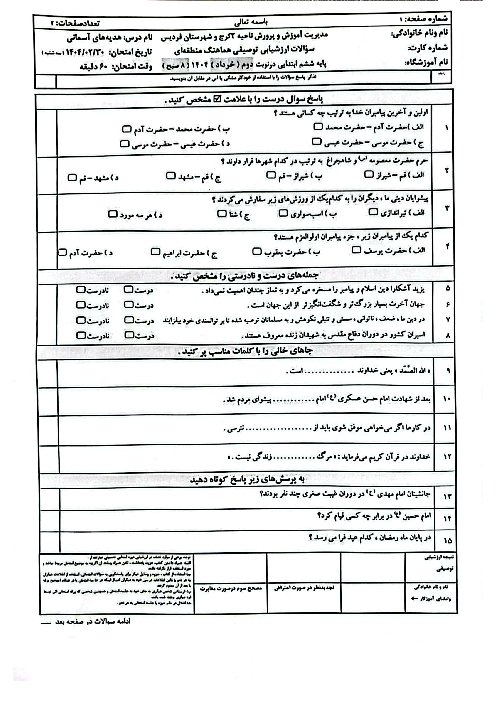 شماره صفحه: ۱
باسمه تعالی
تعدادصفحات: ۲
نام ونام خانوادگی:
مدیریت آموزش و پرورش ناحیه ۲کرج و شهرستان فردیس
نام درس: هدیه‌های آسمانی
شماره کارت:
سؤالات ارزشیابی توصیفی هماهنگ منطقه‌ای
تاریخ امتحان: ۱۴۰۴/۰۲/۳۰ (سه شنبه)
نام آموزشگاه:
پایه ششم ابتدایی درنوبت دوم (خرداد) ۱۴۰۴ (۸ صبح)
وقت امتحان: ۶۰ دقیقه
پاسخ سوال درست را با علامت ☑ مشخص کنید.
۱ اولین و آخرین پیامبران خدا به ترتیب چه کسانی هستند ؟
الف) حضرت آدم – حضرت محمد □ ب) حضرت محمد – حضرت آدم □
ج) حضرت موسی – حضرت عیسی □ د) حضرت عیسی – حضرت موسی □
۲ حرم حضرت معصومه (س) و شاهچراغ به ترتیب در کدام شهرها قرار دارند ؟
الف) قم – شیراز □ ب) شیراز – قم □ ج) قم – مشهد □ د) مشهد – قم □
۳ پیشوایان دینی ما ، دیگران را به کدام‌یک از ورزش‌های زیر سفارش می‌کردند ؟
الف) تیراندازی □ ب) اسب‌سواری □ ج) شنا □ د) هر سه مورد □
۴ کدام یک از پیامبران زیر ، جزء پیامبران اولوالعزم هستند؟
الف) حضرت یوسف □ ب) حضرت یعقوب □ ج) حضرت ابراهیم □ د) حضرت آدم □
جمله‌های درست و نادرستی را مشخص کنید.
۵ یزید آشکارا دین اسلام و پیامبر را مسخره می‌کرد و به نماز چندان اهمیت نمی‌داد . درست□ نادرست□
۶ جهان آخرت بسیار بزرگ‌تر و شگفت‌انگیزتر از این جهان است . درست□ نادرست□
۷ در دین ما ، ضعف ، ناتوانی ، سستی و تنبلی نکوهش و به مسلمانان توصیه شده تا بر توانمندی خود بیفزایند درست□ نادرست□
۸ اسیران کشور در دوران دفاع مقدس به شهیدان زنده معروف هستند. درست□ نادرست□
جاهای خالی را با کلمات مناسب پر کنید .
۹ « الله الصَّمَد » یعنی خداوند ............. است .
۱۰ بعد از شهادت امام حسن عسکری (ع) امام ............ پیشوای مردم شد .
۱۱ در کارها اگر می‌خواهی موفق شوی باید از .................... نترسی .
۱۲ خداوند در قرآن کریم می‌فرماید : « مرگ ............ زندگی نیست . »
به پرسش‌های زیر پاسخ کوتاه دهید
۱۳ جانشینان امام مهدی (ع) در دوران غیبت صغری چند نفر بودند؟
۱۴ امام حسین (ع) در برابر چه کسی قیام کرد؟
۱۵ در پایان ماه رمضان ، کدام عید فرا می رسد ؟
نتیجه ارزشیابی
توصیفی
نام و نام خانوادگی
وامضای آموزگار ←
تجدیدنظر در صورت اعتراض
مصحح سوم درصورت مغایرت
ادامه سوالات در صفحه بعد